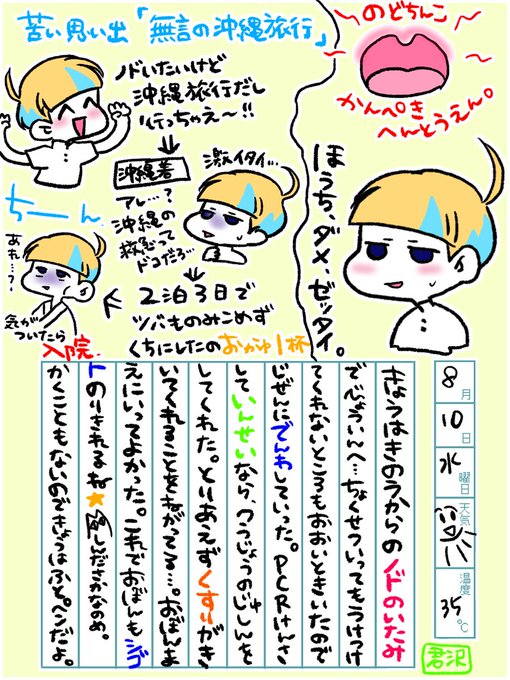 苦い思い出「無言の沖縄旅行」
ノドいたいけど
沖縄旅行だし
行っちゃえ〜!!
沖縄着
激イタイ…
アレ…?
沖縄の
救急って
ドコだろ…
ちーん
2泊3日で
ツバものみこめず
くちにしたのおかゆ1杯
あれ…?
気が
ついたら
入院
のどちんこ
かんぺき
へんとうえん。
ほうち、ダメ、ゼッタイ。
8月10日水曜日
天気
温度35℃
きょうはきのうからのノドのいたみ
でびょういんへ…ちょくせついってもうけつけ
てくれないところもおおいときいたので
じぜんにでんわしていった。PCRけんさ
していんせいなら、つうじょうの
してくれた。とりあえずくすりがき
いてくれることをねがってる…。おぼんま
えにいってよかった。これでおぼんもシゴ
トのりきれるね★しんださかなのめ。
かくこともないのできょうはふとペンだよ。
君沢